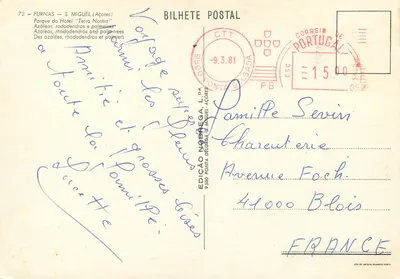 72 — FURNAS — S. MIGUEL (Açores)
Parque do Hotel "Terra Nostra"
Azáleas, rododendros e palmeiras
Azaleas, rhododendrons and palmtrees
Des azalées, rhododendrons et palmiers
BILHETE POSTAL
Voyage super
parmi les fleurs
Amitié et grosses bises
à toute la famille
Lucette
EDIÇÃO NOBREGA, L.DA
CTT
-9.3.81
PB
CORREIO DE
PORTUGAL
1500
Famille Sevin
Charcuterie
Avenue Foch.
41000 Blois
FRANCE